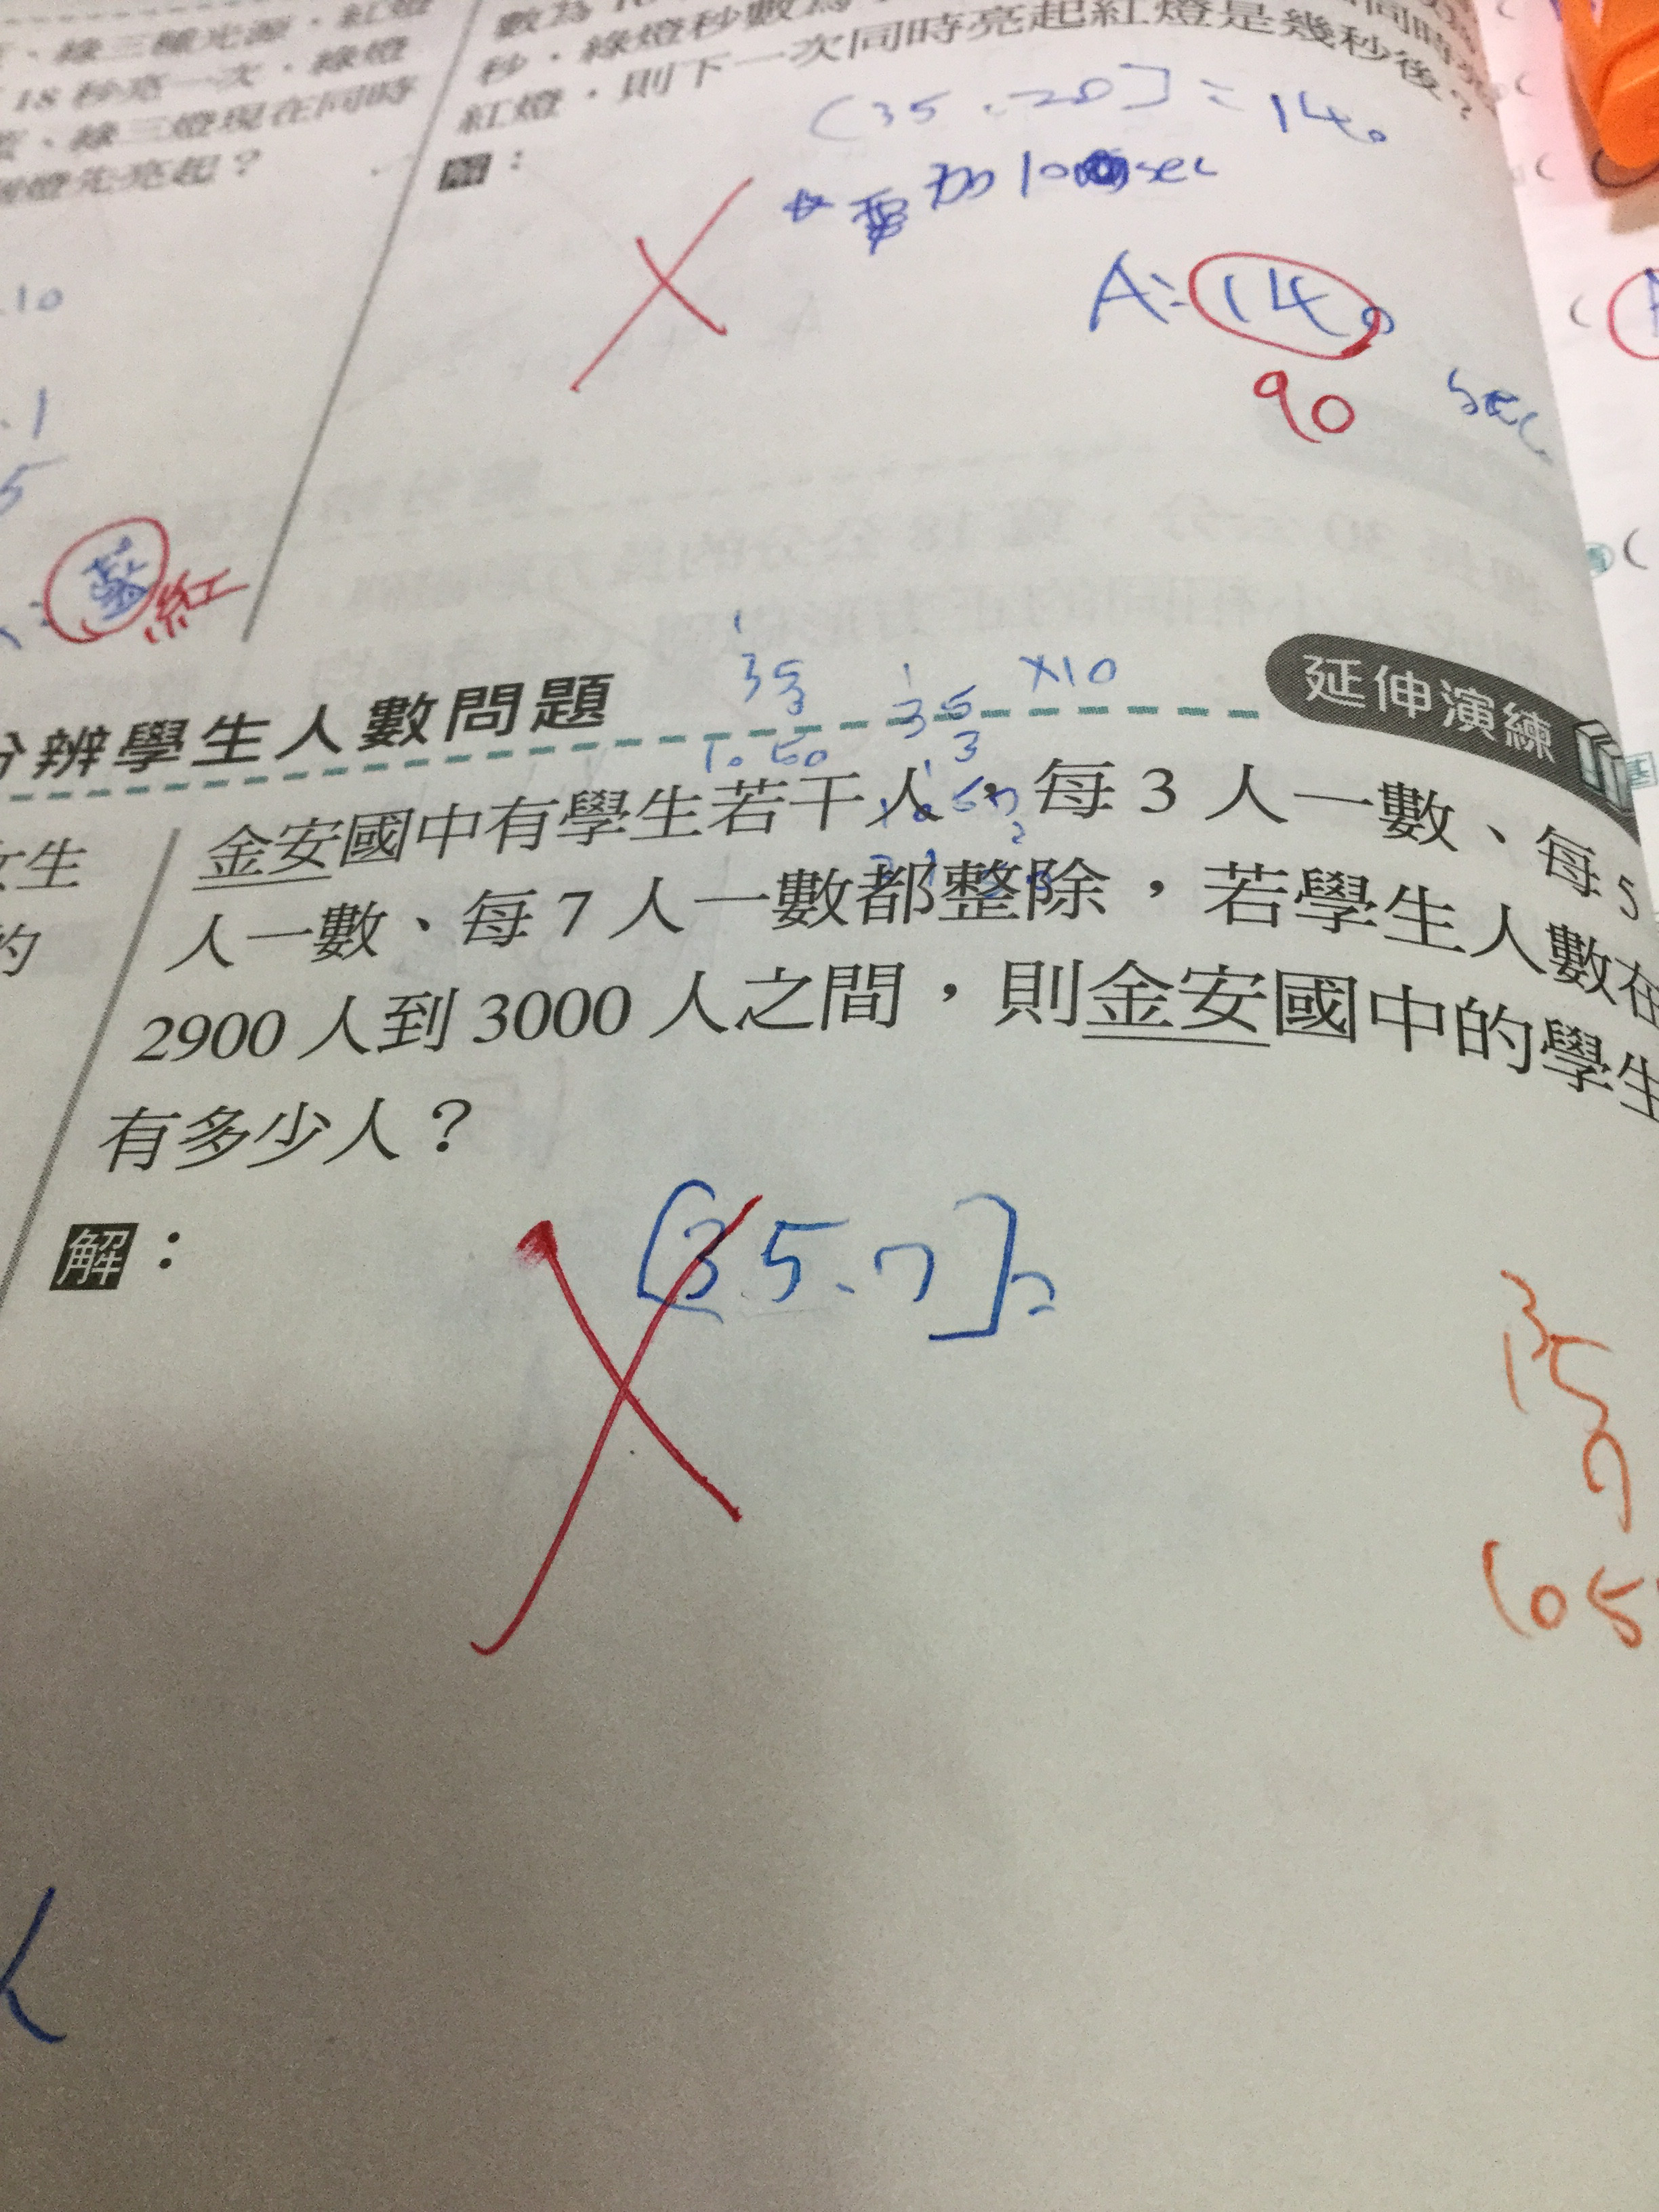 、綠三種光源,紅燈
18 秒亮一次,綠燈
、綠三燈現在同時
燈先亮起?
10
.1
5
紅
數為
秒,綠燈秒數為
紅燈,則下一次同時亮起紅燈是幾秒後?
解:
(35.20]=140
加10 sec
A:140
sec
90
分辨學生人數問題
延伸演練
35
3
1050
35
×10
3
女生
的
金安國中有學生若干人,每 3 人一數、每 5
人一數、每 7 人一數都整除,若學生人數在
2900 人到 3000 人之間,則金安國中的學生
有多少人?
解:
[35.7]=
3
15
7
105